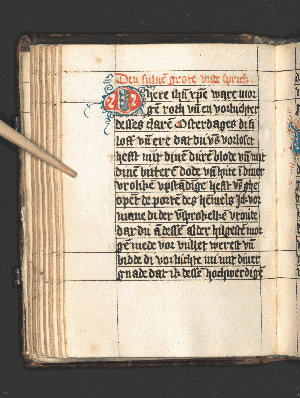 Den suluen grote vnde sprich
here ih̄u xp̄e ware mor
gē roth vn̄ en vorluchter
desses clarē Osterdages di si
loff vn̄ ere dat du vs vorloset
hefst mit dinē durē blode vn̄ mit
dinē bitterē dode vn̄ hute i diner
vroliken vpstādinge hefst vs gheo
opent de portē des hēmels Ik vor
mane di der vnsprokelkē vroude
dar du ā desse alder hilgestē mor
gē mede vor vullet werest vn̄
bidde di vorluchte mi mit diner
gnade dat ik desse hochwerdigē